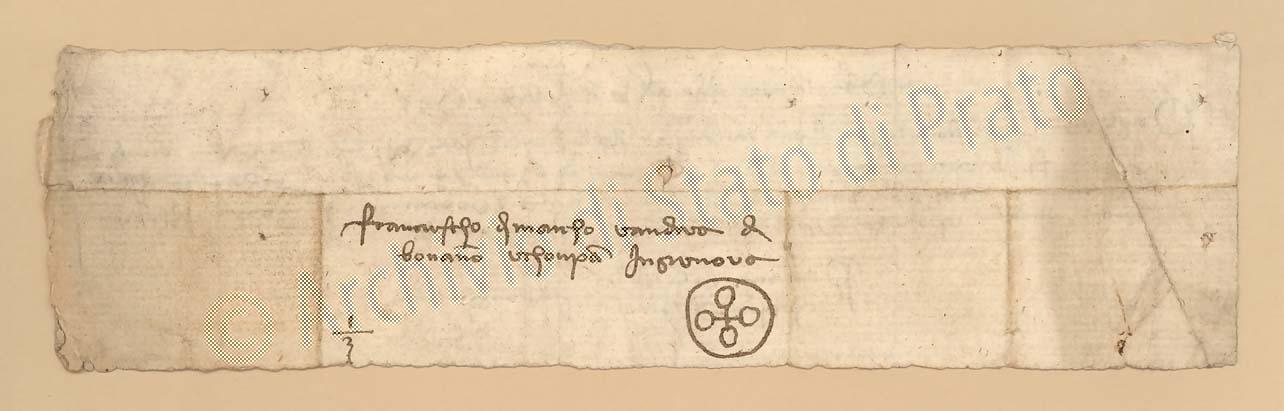 Francescho di marcho e andrea di
bonano e chonpa In gienova
1
3
© Archivio di Stato di Prato